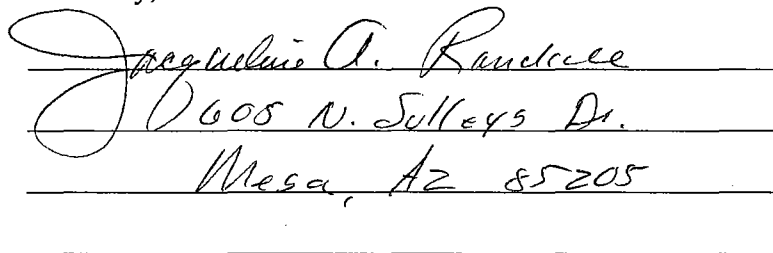 Jacqueline A. Randall
605 N. Sulleys Dr.
Mesa, AZ 85205